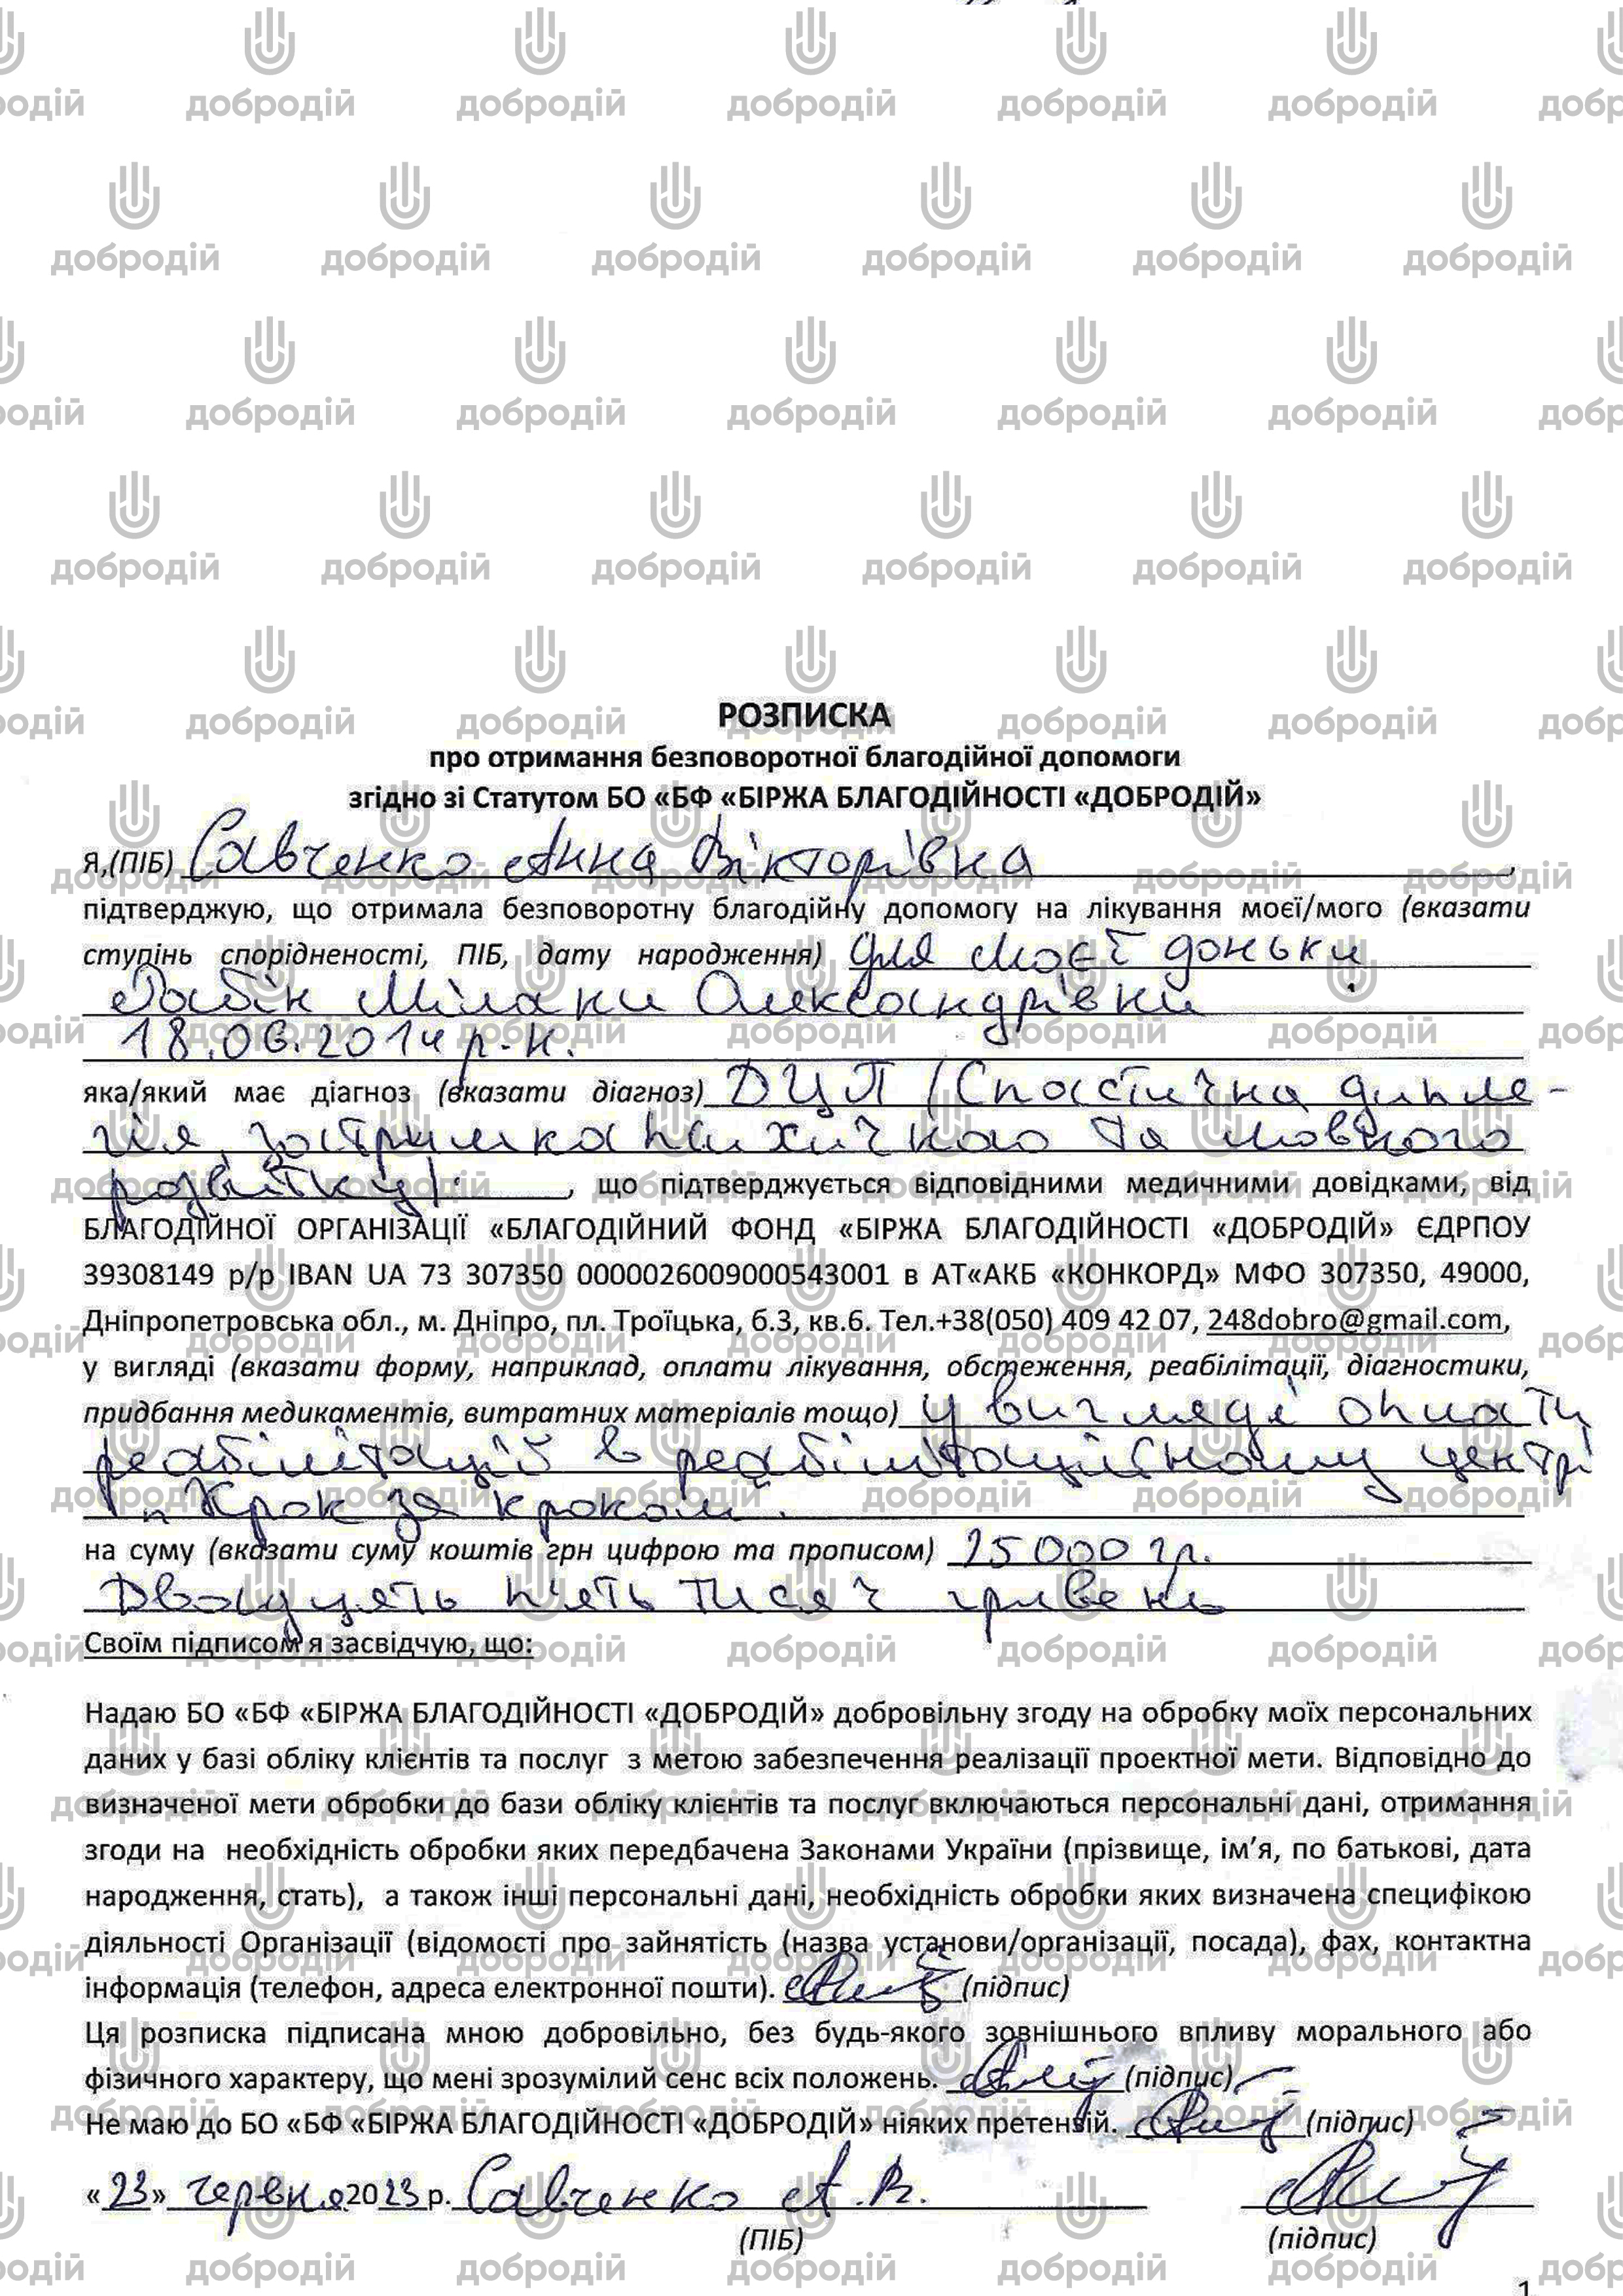 РОЗПИСКА
про отримання безповоротної благодійної допомоги
згідно зі Статутом БО «БФ «БІРЖА БЛАГОДІЙНОСТІ «ДОБРОДІЙ»
Я,(ПІБ) Савченко Анна Вікторівна,
підтверджую, що отримала безповоротну благодійну допомогу на лікування моєї/мого (вказати
ступінь спорідненості, ПІБ, дату народження) для моєї доньки
Мілани Олександрівни
18.06.2014 р.н.
яка/який має діагноз (вказати діагноз) ДЦП (Спастична дипле-
гія, затримка психічного та мовного
розвитку)., що підтверджується відповідними медичними довідками, від
БЛАГОДІЙНОЇ ОРГАНІЗАЦІЇ «БЛАГОДІЙНИЙ ФОНД «БІРЖА БЛАГОДІЙНОСТІ «ДОБРОДІЙ» ЄДРПОУ
39308149 р/р IBAN UA 73 307350 0000026009000543001 в АТ«АКБ «КОНКОРД» МФО 307350, 49000,
Дніпропетровська обл., м. Дніпро, пл. Троїцька, б.3, кв.6. Тел.+38(050) 409 42 07, 248dobro@gmail.com,
у вигляді (вказати форму, наприклад, оплати лікування, обстеження, реабілітації, діагностики,
придбання медикаментів, витратних матеріалів тощо) у вигляді оплати
реабілітації в реабілітаційному центрі
"Крок за кроком".
на суму (вказати суму коштів грн цифрою та прописом) 25000 гр.
Двадцять п'ять тисяч гривень
Своїм підписом я засвідчую, що:
Надаю БО «БФ «БІРЖА БЛАГОДІЙНОСТІ «ДОБРОДІЙ» добровільну згоду на обробку моїх персональних
даних у базі обліку клієнтів та послуг з метою забезпечення реалізації проектної мети. Відповідно до
визначеної мети обробки до бази обліку клієнтів та послуг включаються персональні дані, отримання
згоди на необхідність обробки яких передбачена Законами України (прізвище, ім’я, по батькові, дата
народження, стать), а також інші персональні дані, необхідність обробки яких визначена специфікою
діяльності Організації (відомості про зайнятість (назва установи/організації, посада), фах, контактна
інформація (телефон, адреса електронної пошти). (підпис)
Ця розписка підписана мною добровільно, без будь-якого зовнішнього впливу морального або
фізичного характеру, що мені зрозумілий сенс всіх положень. (підпис)
Не маю до БО «БФ «БІРЖА БЛАГОДІЙНОСТІ «ДОБРОДІЙ» ніяких претензій. (підпис)
«23» червня 2023 р. Савченко А.В.
(ПІБ) (підпис)
1
добродій